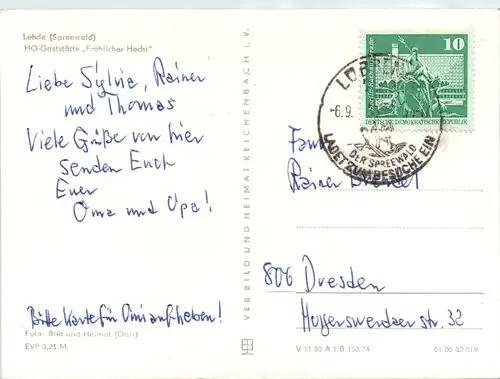 Lehde (Spreewald)
HO-Gaststätte „Fröhlicher Hecht"
Liebe Sylvia, Rainer
und Thomas
Viele Grüße von hier
senden Euch
Euer
Oma und Opa!
Bitte Karte für Omi aufheben!
Foto: Bild und Heimat (Dari)
EVP 0,25 M
VEB BILD UND HEIMAT REICHENBACH I. V.
10
DEUTSCHE DEMOKRATISCHE REPUBLIK
-6.9.
DER SPREEWALD
LADET ZUM BESUCHE EIN
Fam.
Rainer
806 Dresden
Hoyerswerdaer str. 32
V 11 50 A 1/B 150/74
01 06 02 019